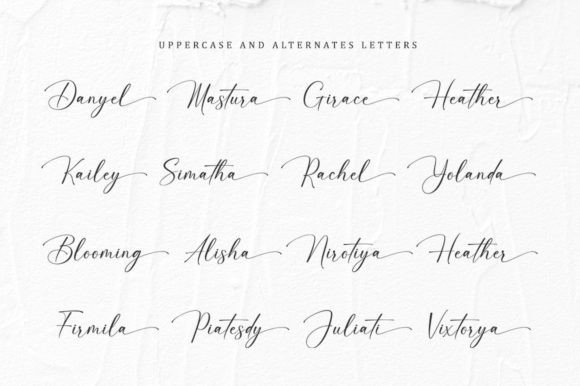 UPPERCASE AND ALTERNATES LETTERS
Danyel Mastura Girace Heather
Kailey Simatha Rachel Yolanda
Blooming Alisha Nirotiya Heather
Firmila Piatesdy Juliati Vixtorya